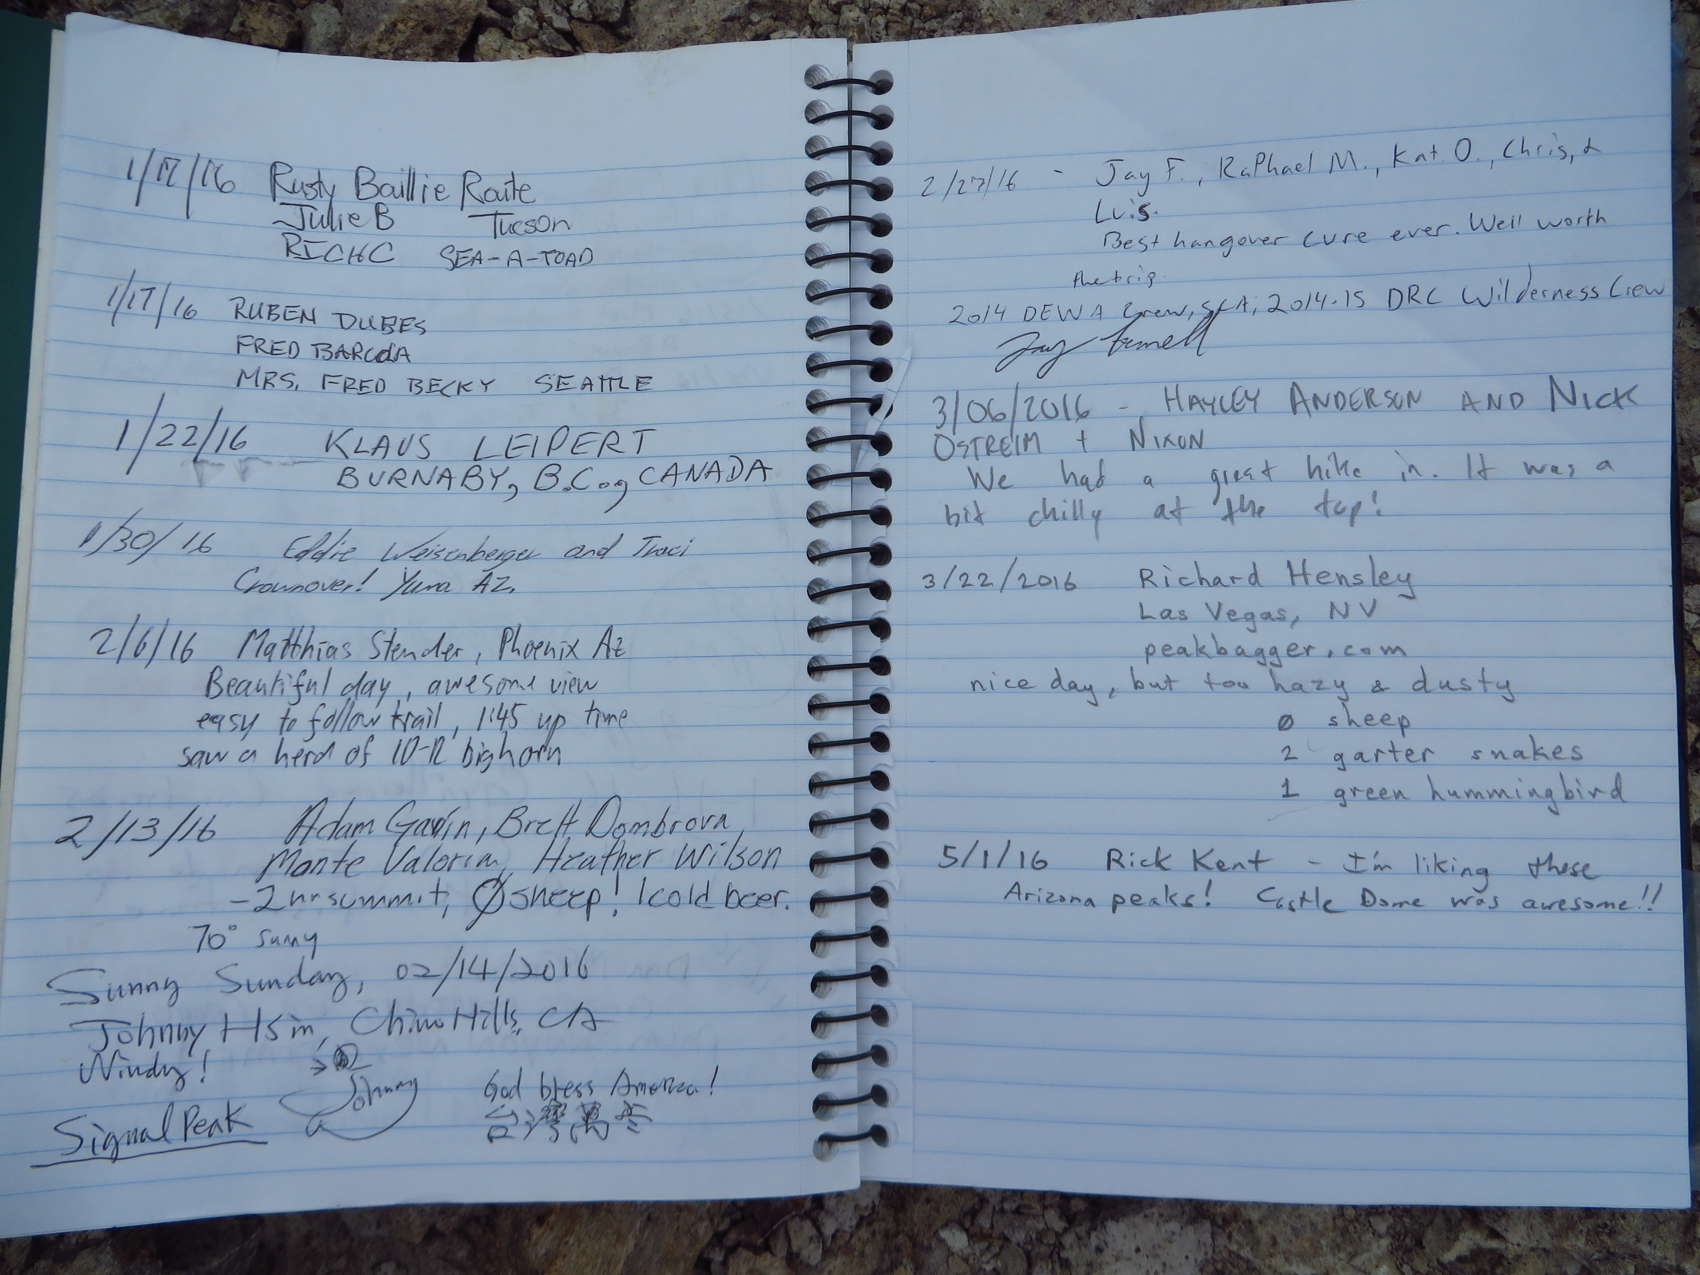 1/17/16 Rusty Baillie Route
Julie B Tucson
RICHC SEA-A-TOAD
1/17/16 RUBEN DUBES
FRED BARCDA
MRS. FRED BECKY SEATTLE
1/22/16 KLAUS LEIPERT
BURNABY, B.C., CANADA
1/30/16 Eddie Weisenberger and Traci
Crownover! Yuma AZ.
2/6/16 Matthias Stender, Phoenix Az
Beautiful day, awesome view
easy to follow trail, 1:45 up time
saw a herd of 10-12 bighorn
2/13/16 Adam Gavin, Brett Dombrova,
Monte Valoria, Heather Wilson
- 2 hr summit, Ø sheep! 1 cold beer.
70° sunny
Sunny Sunday, 02/14/2016
Johnny Hsin, Chino Hills, CA
Windy!
Johnny God bless America!
Signal Peak 台灣萬岺
2/27/16 - Jay F., Raphael M., Kat. O., Chris, &
Luis.
Best hangover cure ever. Well worth
the trip.
2014 DEWA Crew, SCA, 2014-15 DRC Wilderness Crew
Jay
3/06/2016 - HAYLEY ANDERSON AND NICK
OSTREIM + NIXON
We had a great hike in. It was a
bit chilly at the top!
3/22/2016 Richard Hensley
Las Vegas, NV
peakbagger.com
nice day, but too hazy & dusty
Ø sheep
2 garter snakes
1 green hummingbird
5/1/16 Rick Kent - I'm liking these
Arizona peaks! Castle Dome was awesome!!